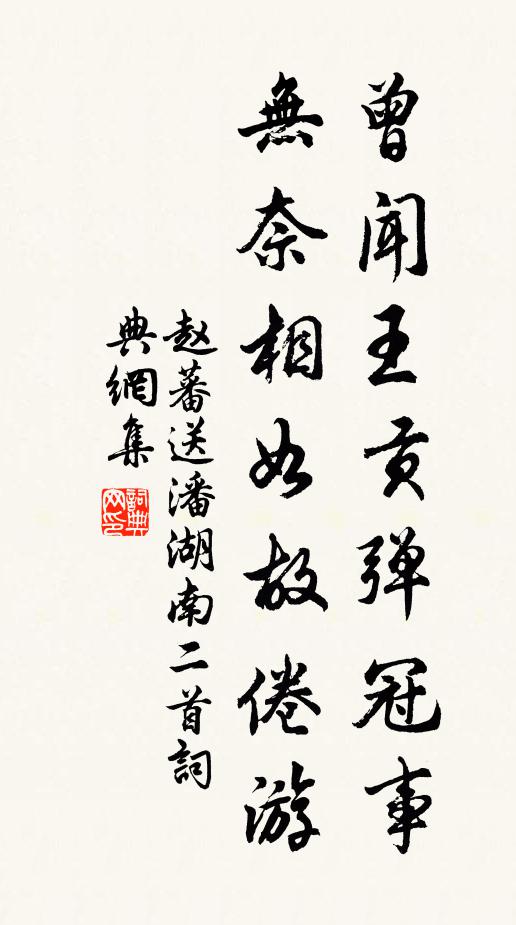 曾闻王贡弹冠事
無奈相如故倦游
赵蕃送潘湖南二首詞
典網集
詞典
网印